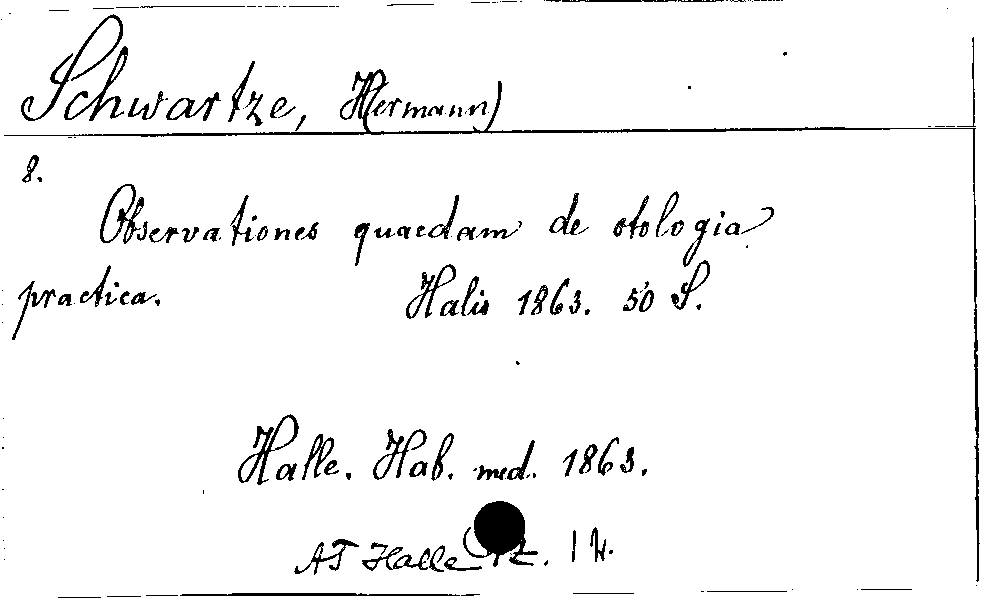 Schwartze, H(ermann)
8.
Observationes quaedam de otologia
practica. Halis 1863. 50 S.
Halle. Hab. med. 1863.
AT Halle